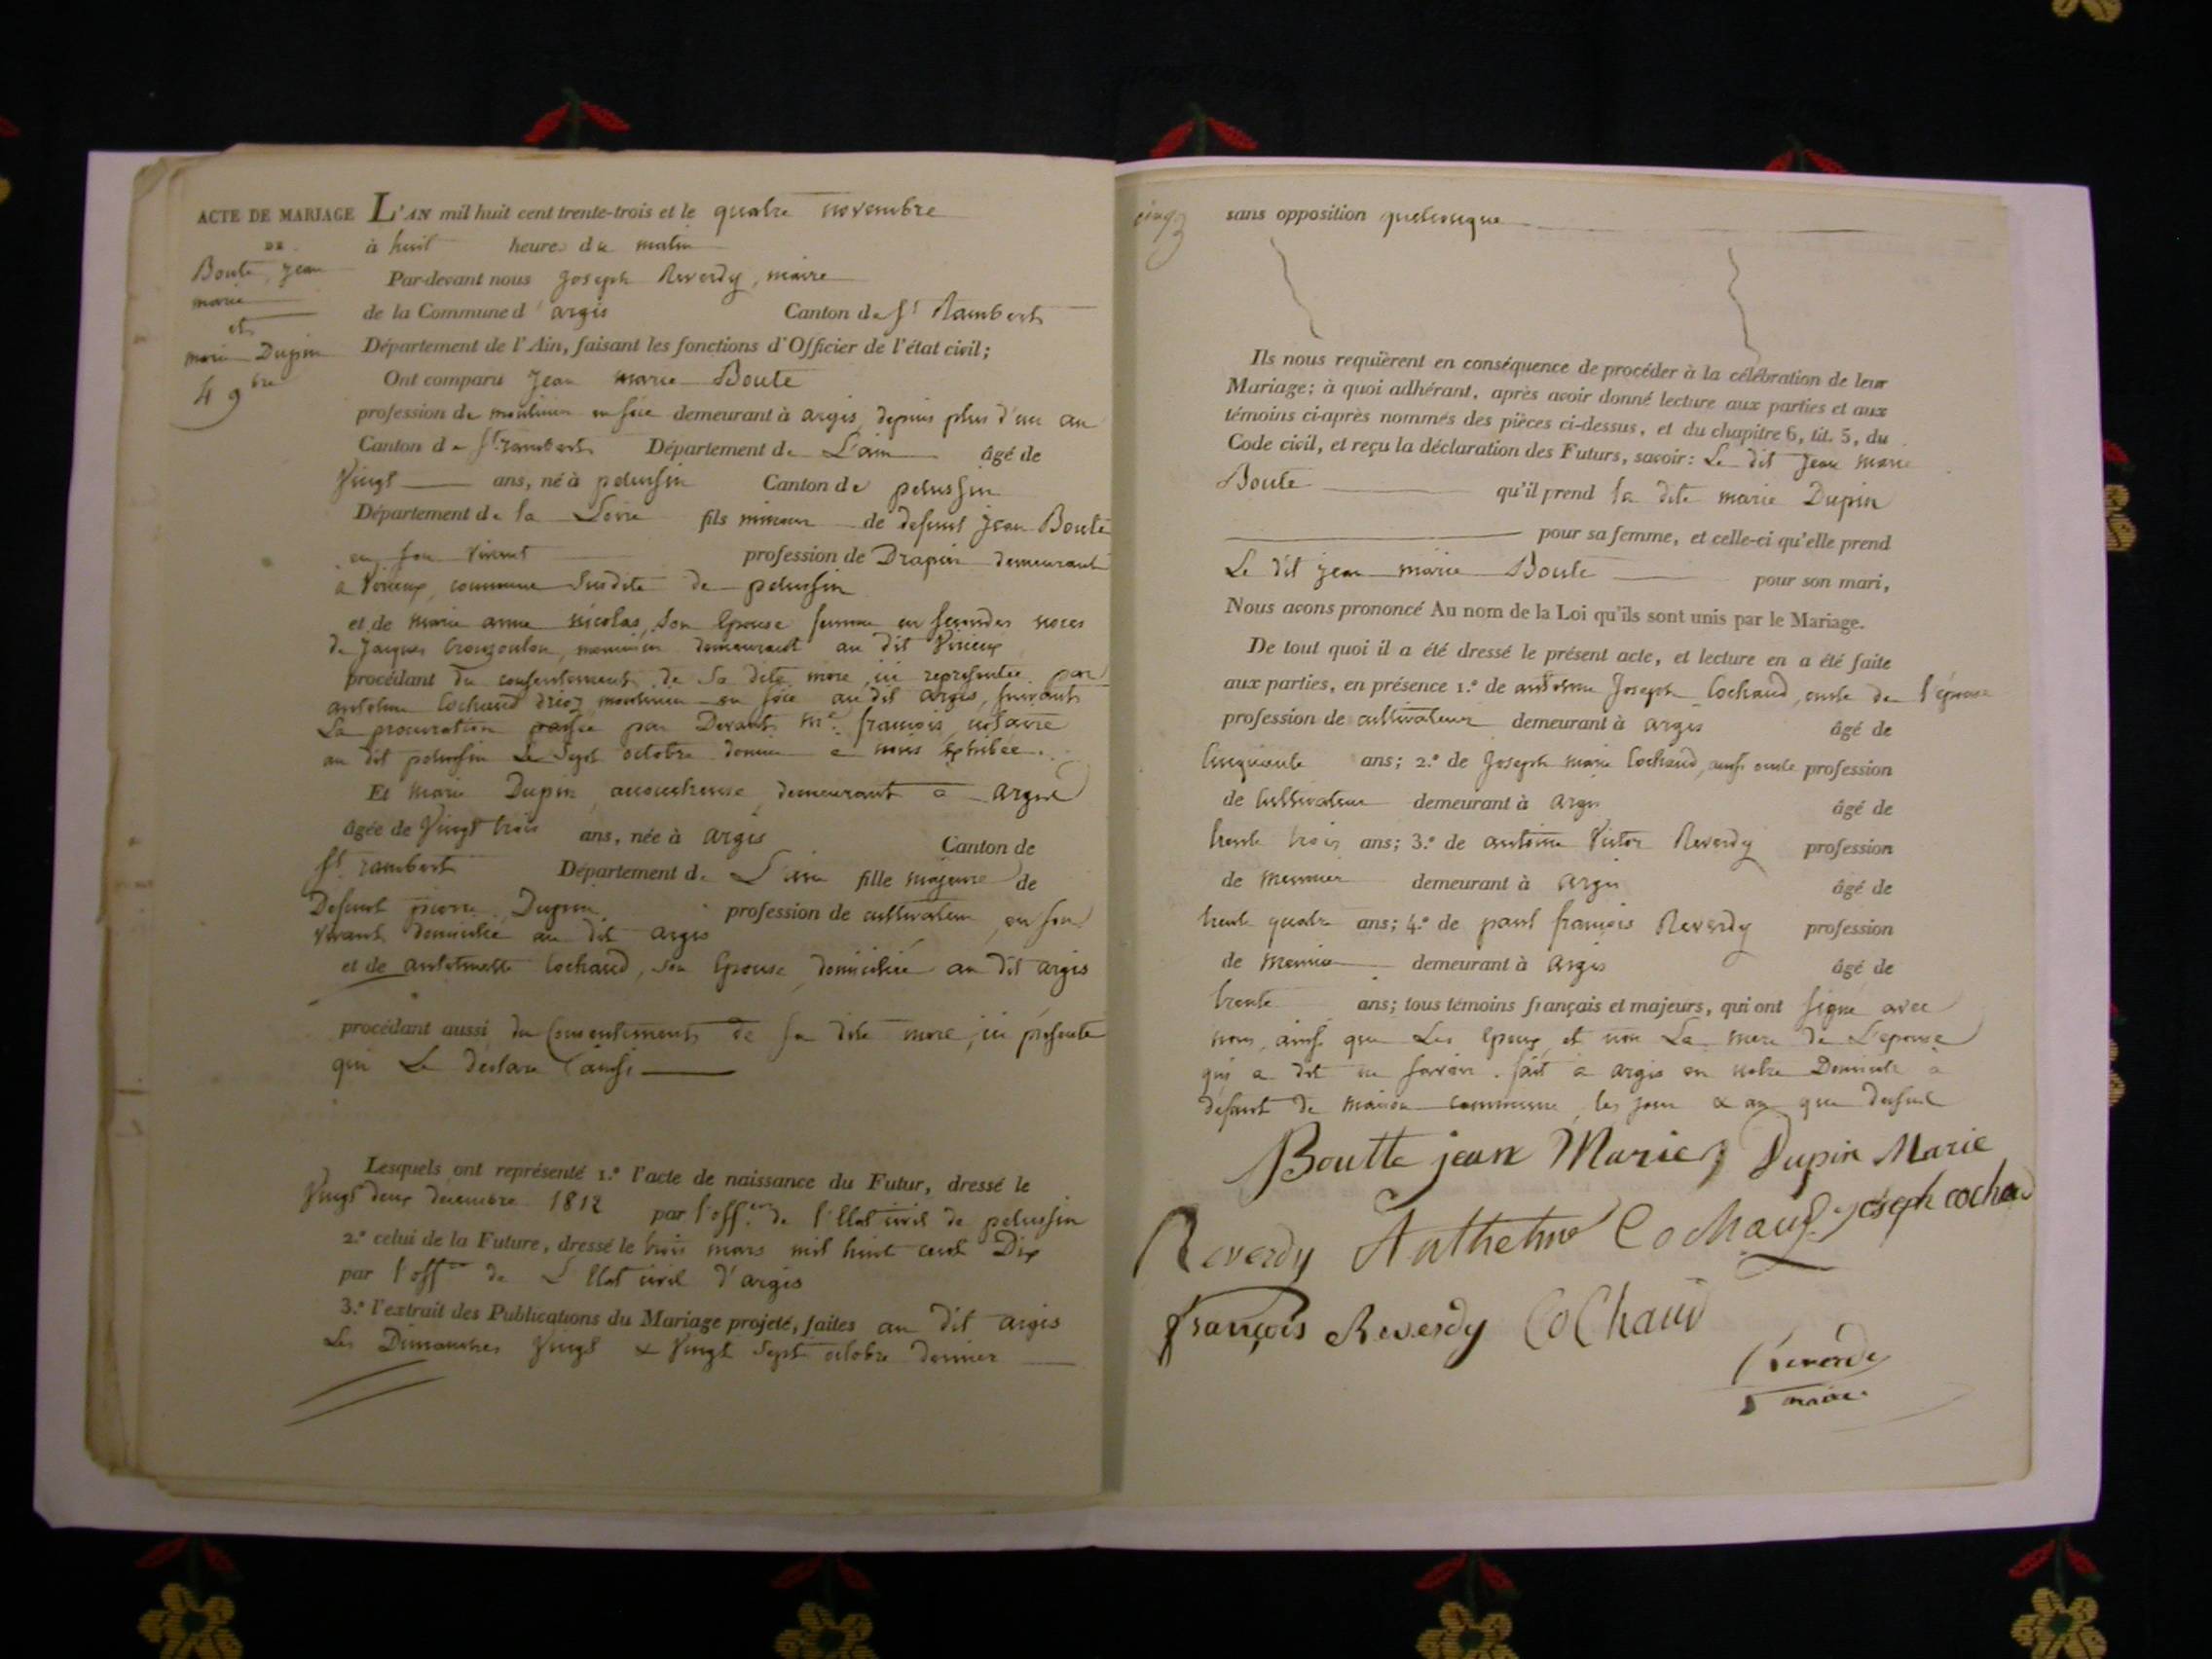 ACTE DE MARIAGE
DE
Boute, jean
marie
et
marie Dupin
4 9bre
L'AN mil huit cent trente-trois et le quatre novembre
à huit heures du matin
Par-devant nous Joseph Reverdy, maire
de la Commune d'argis Canton de St Rambert
Département de l'Ain, faisant les fonctions d'Officier de l'état civil;
Ont comparu Jean marie Boute
profession de moulinier en soie demeurant à argis depuis plus d'un an
Canton de St rambert Département de L'ain âgé de
Vingt ans, né à pelussin Canton de pelussin
Département de la Loire fils mineur de defunt jean Boute
en son vivant profession de Drapier demeurant
a Virieux, commune Susdite de pelussin
et de marie anne nicolas, son Epouse femme en secondes noces
de Jacques demeurant au dit Virieux
procédant du consentement de Sa dite mere, ici representée par
antelme Cochaud moulinier en soie au dit argis, suivant
La procuration passée par Devant me. françois, notaire
au dit pelussin Le Sept octobre dernier a nous Exhibée.
Et marie Dupin, demeurant a argis
âgée de Vingt trois ans, née à argis Canton de
St. rambert Département de L'ain fille majeure de
Defunt pierre Dupin profession de cultivateur, en son
vivant domicilié au dit argis
et de antoinette Cochaud, son Epouse, domiciliée au dit argis
procédant aussi du Consentement de sa dite mere, ici présente
qui Le declare ainsi
Lesquels ont représenté 1.º l'acte de naissance du Futur, dressé le
Vingt deux decembre 1812 par l'off.er de l'Etat civil de pelussin
2.º celui de la Future, dressé le trois mars mil huit cent Dix
par l'off.er de L'Etat civil d'argis
3.º l'extrait des Publications du Mariage projeté, faites au dit argis
Les Dimanches Vingt & Vingt Sept octobre dernier
cinq
sans opposition quelconque
Ils nous requièrent en conséquence de procéder à la célébration de leur
Mariage; à quoi adhérant, après avoir donné lecture aux parties et aux
témoins ci-après nommés des pièces ci-dessus, et du chapitre 6, tit. 5, du
Code civil, et reçu la déclaration des Futurs, savoir: Le dit Jean marie
Boute qu'il prend la dite marie Dupin
pour sa femme, et celle-ci qu'elle prend
Le dit jean marie Boute pour son mari,
Nous avons prononcé Au nom de la Loi qu'ils sont unis par le Mariage.
De tout quoi il a été dressé le présent acte, et lecture en a été faite
aux parties, en présence 1.º de antelme Joseph Cochaud, oncle de l'épouse
profession de cultivateur demeurant à argis âgé de
Cinquante ans; 2.º de Joseph marie Cochaud, aussi oncle profession
de Cultivateur demeurant à argis âgé de
trente trois ans; 3.º de antoine Victor Reverdy profession
de meunier demeurant à argis âgé de
trente quatre ans; 4.º de paul françois Reverdy profession
de meunier demeurant à argis âgé de
trente ans; tous témoins français et majeurs, qui ont signé avec
nous, ainsi que Les Epoux et non La mere de L'epouse
qui a dit ne savoir. fait a argis en notre Domicile a
défaut de maison commune, les jour & an que dessus
Boutte jean Marie Dupin Marie
Reverdy Anthelme Cochaud joseph cochaud
françois Reverdy CoChaud
Reverdy
maire.